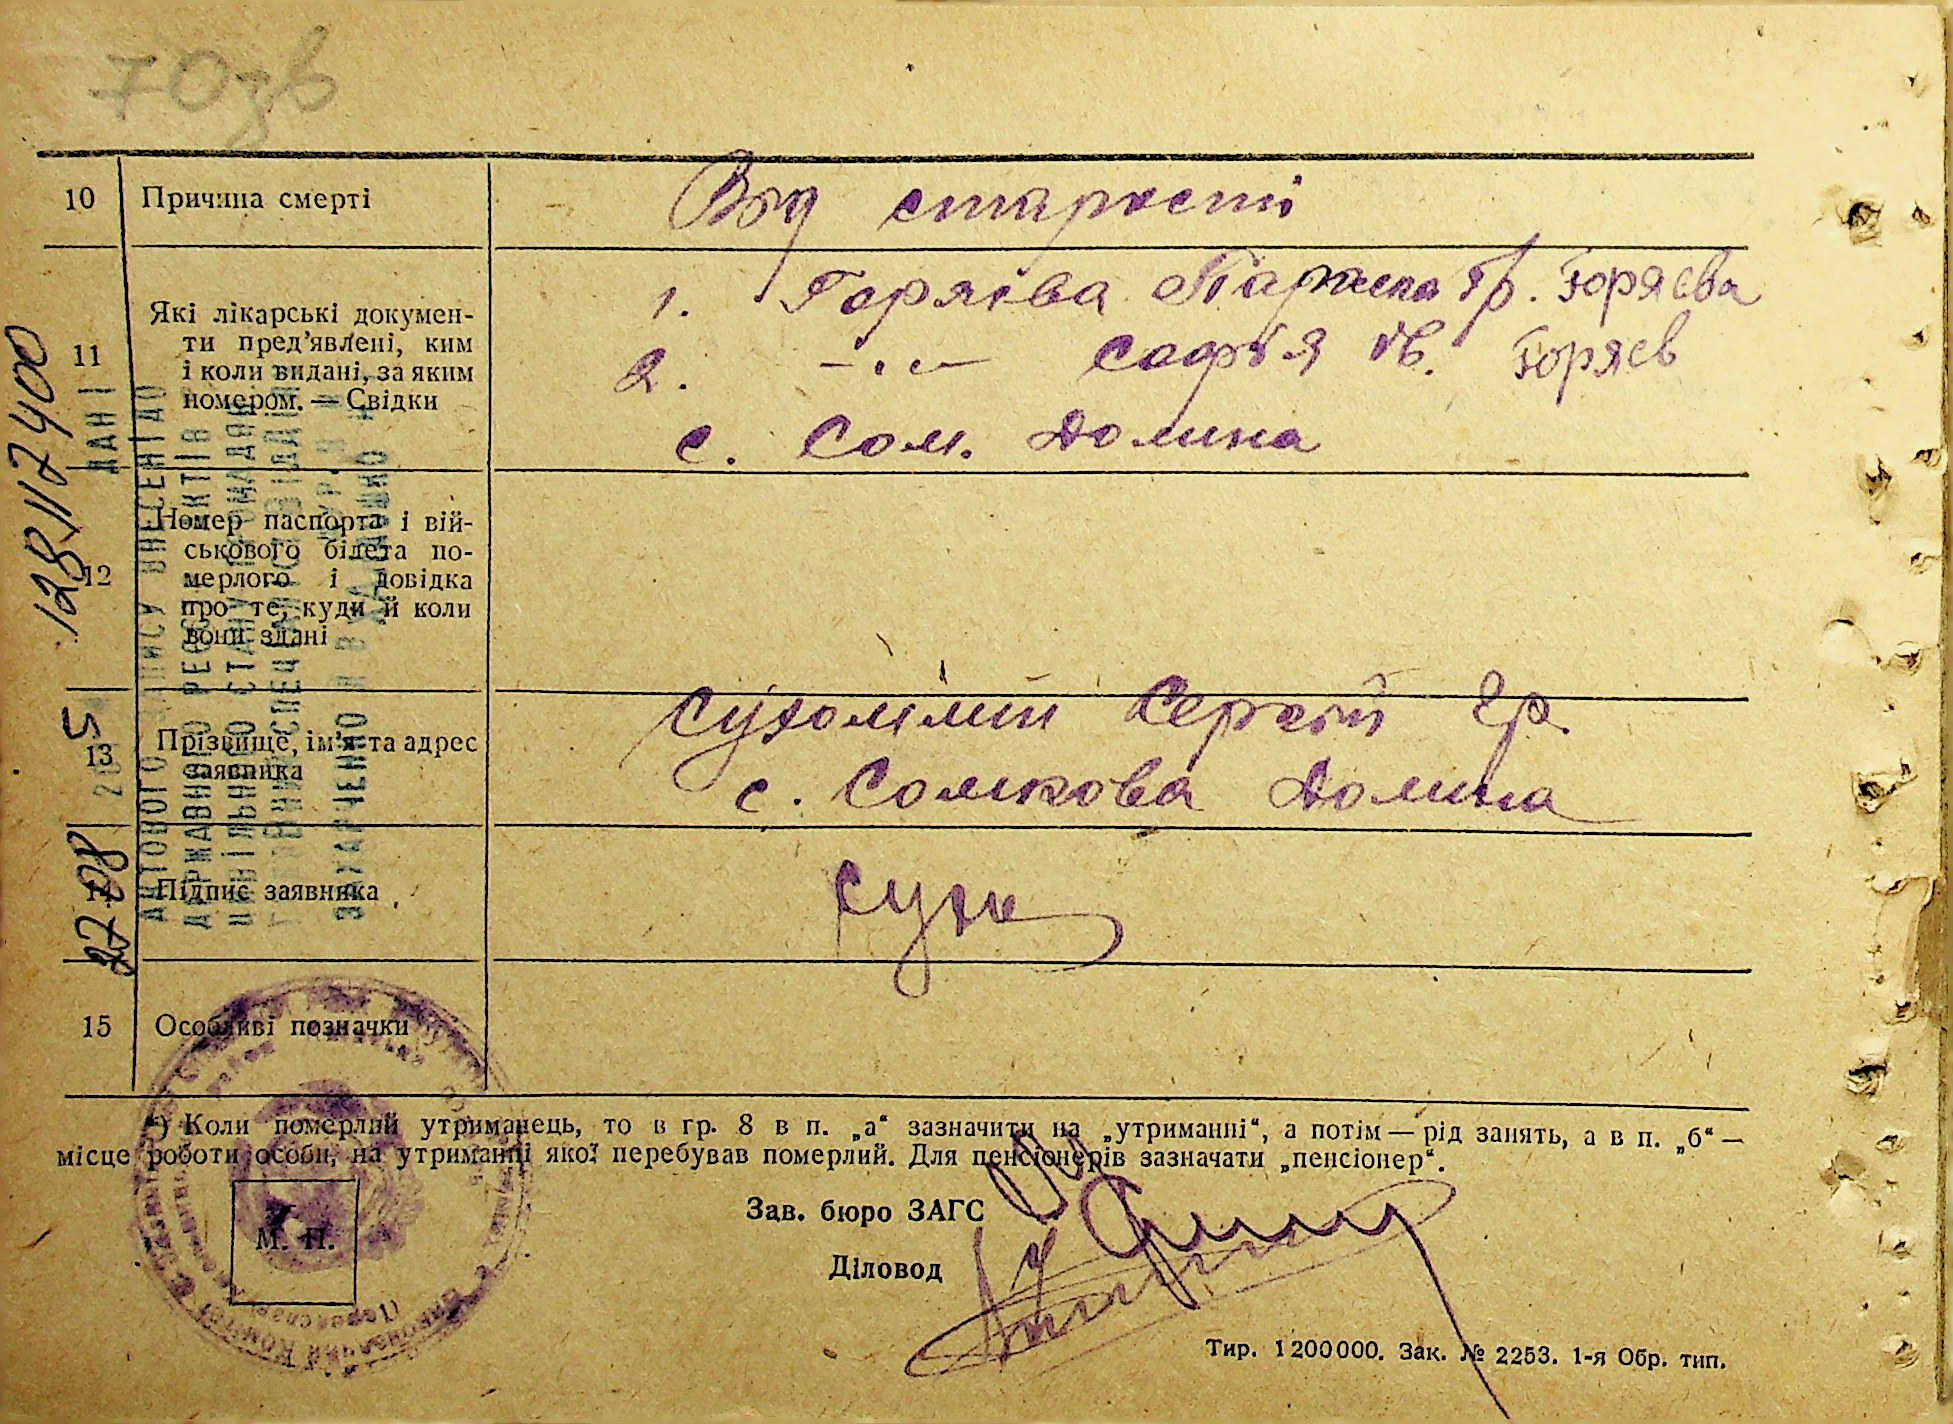 70зв
10 Причина смерті Від старости
11 Які лікарські докумен-
ти пред’явлені, ким
і коли видані, за яким
номером. — Свідки
1. Горяєва Параска Гр. Горяєва
2. –„– Софія Ів. Горяєв
с. Сом. Долина
12 Номер паспорта і вій-
ськового білета по-
мерлого і довідка
про те, куди й коли
вони здані
13 Прізвище, ім’я та адрес
заявника
Сухомлин Сергій Гр.
с. Сомкова Долина
14 Підпис заявника Сухо
15 Особливі позначки
*) Коли померлий утриманець, то в гр. 8 в п. „а“ зазначити на „утриманні“, а потім — рід занять, а в п. „б“ —
місце роботи особи, на утриманні якої перебував померлий. Для пенсіонерів зазначати „пенсіонер“.
Зав. бюро ЗАГС
Діловод
М. П.
Тир. 1200000. Зак. № 2253. 1-я Обр. тип.
ДАНІ
АКТОВОГО ЗАПИСУ ВНЕСЕНІ ДО
ДЕРЖАВНОГО РЕЄСТРУ АКТІВ
ЦИВІЛЬНОГО СТАНУ ГРОМАДЯН
ЗАХАРЧЕНКО
128117400
27 08